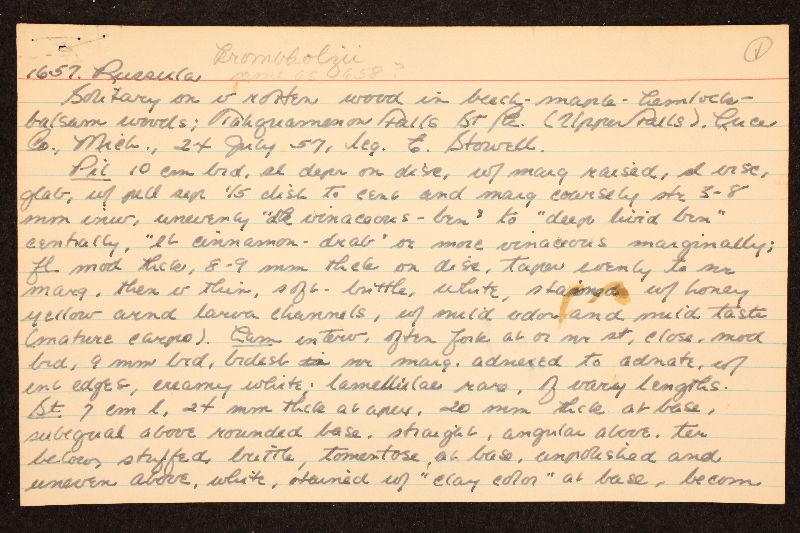 Krombholzii
1657. Russula same as 1658?
①
Solitary on v rotten wood in beech-maple-hemlock-
balsam woods; Tahquamenon Falls St Pk. (Upper Falls), Luce
Co., Mich., 24 July 57, leg. E. Stowell.
Pil 10 cm brd, sl depr on disc, w/ marg raised, sl visc,
glab, w/ pell sep 1/5 dist to cent and marg coarsely str 3-8
mm inw, unevenly "dk vinaceous-brn" to "deep livid brn"
centrally, "lt cinnamon-drab" or more vinaceous marginally;
fl mod thick, 8-9 mm thick on disc, taper evenly to nr
marg, then v thin, soft-brittle, white, stained w/ honey
yellow arnd larva channels, w/ mild odor and mild taste
(mature carpo). Lam interv, often fork at or nr st, close, mod
brd, 9 mm brd, brdest nr marg, adnexed to adnate, w/
ent edges, creamy white; lamellulae rare, of vary lengths.
St. 7 cm l, 24 mm thick at apex, 20 mm thick at base,
subequal above rounded base, straight, angular above, ter
below, stuffed, brittle, tomentose at base, unpolished and
uneven above, white, stained w/ "clay color" at base, becom